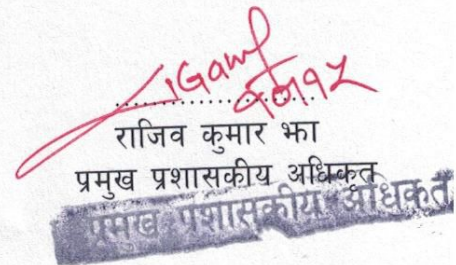 राजिव कुमार झा
प्रमुख प्रशासकीय अधिकृत
प्रमुख प्रशासकीय अधिकृत